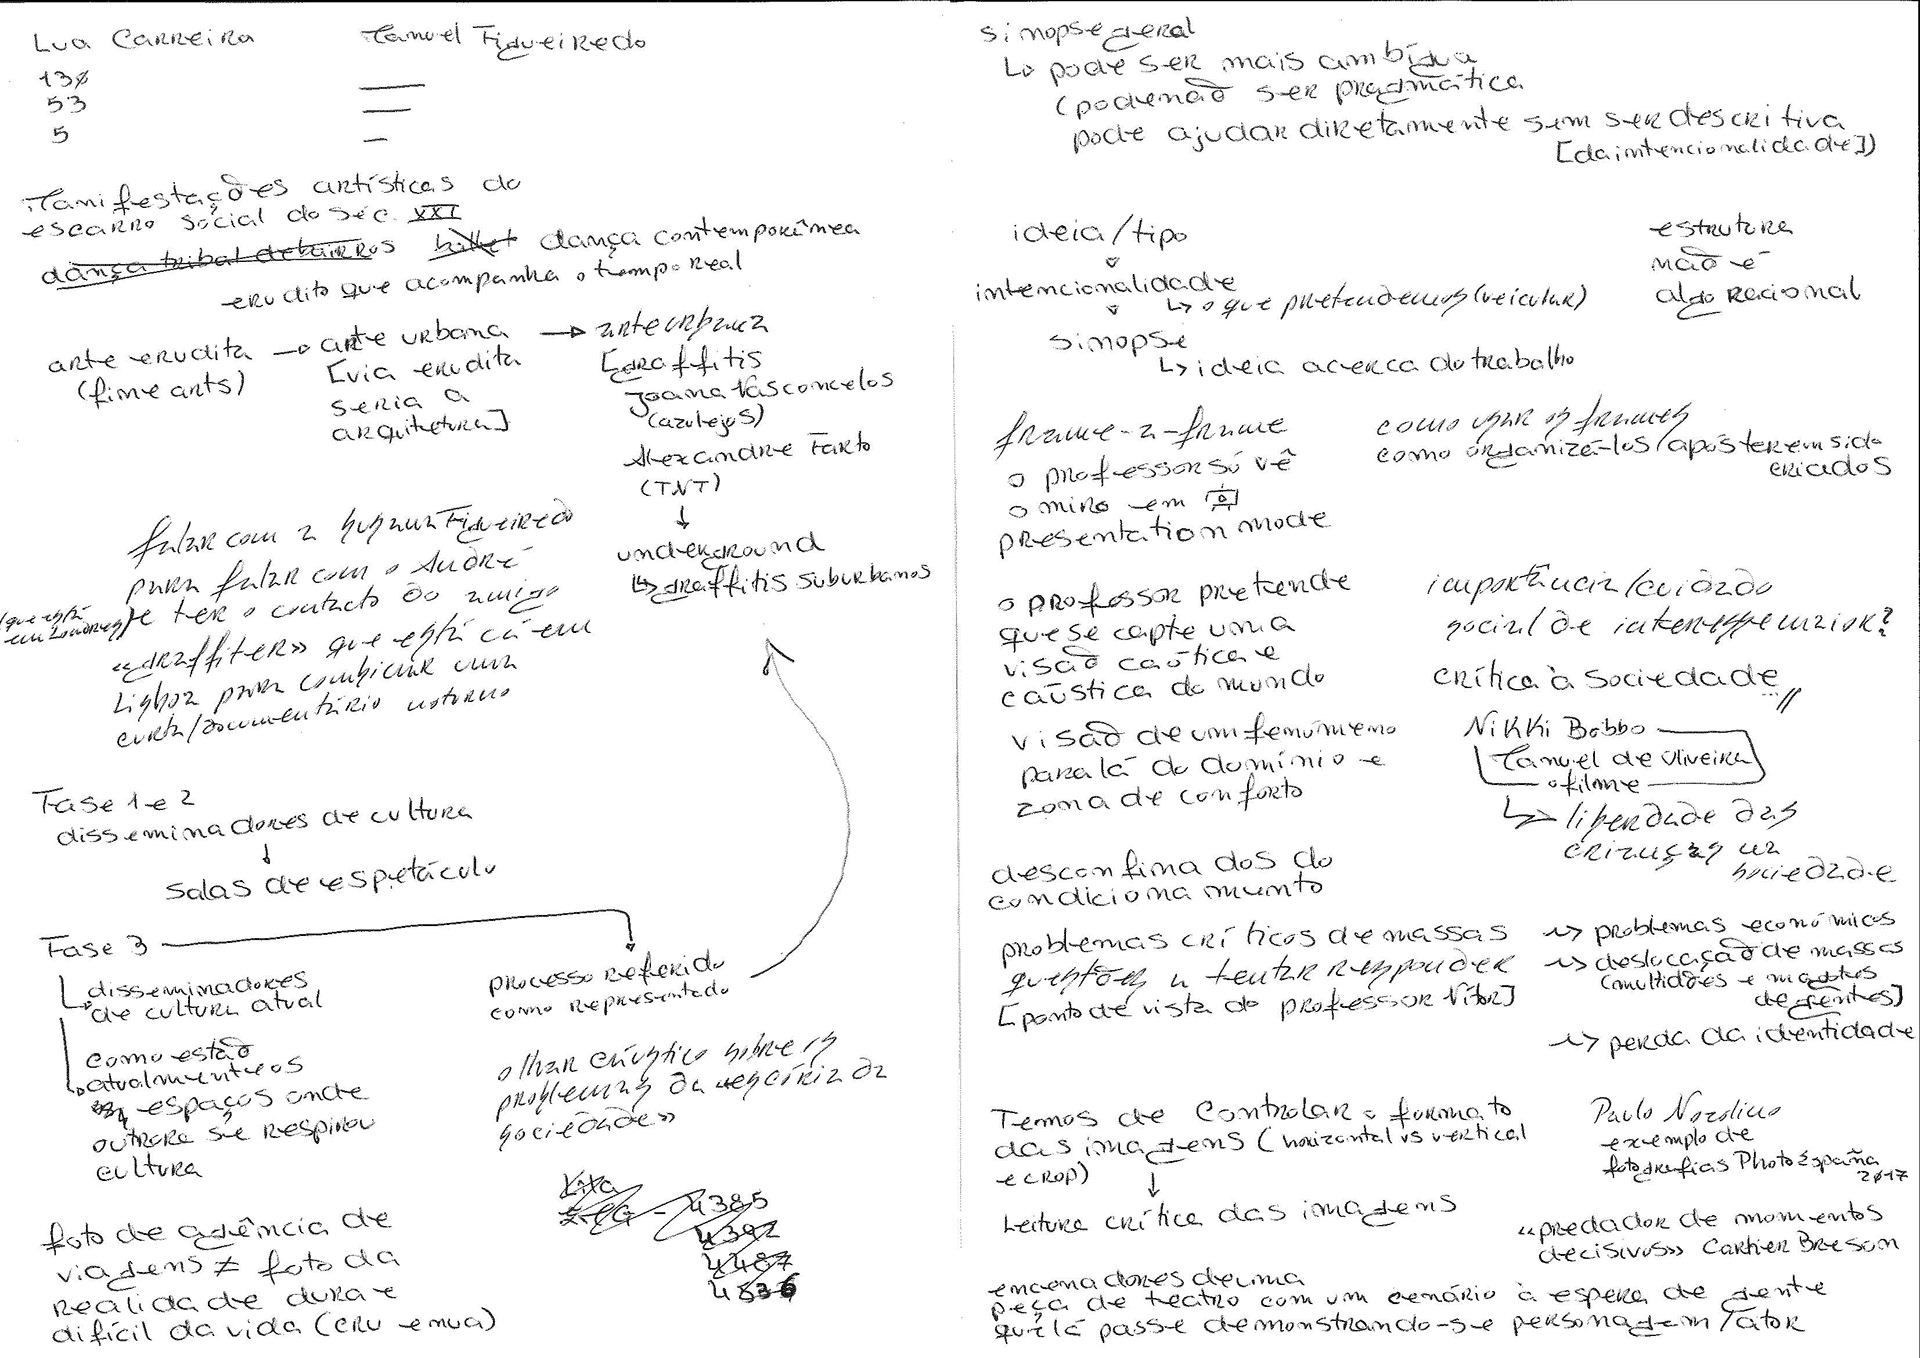 Lua Carreira
Manuel Figueiredo
130
53
5
Manifestações artísticas do
escarro social do séc. XXI
dança tribal de bairros ballet dança contemporânea
erudito que acompanha o tempo real
arte erudita → arte urbana → arte urbana
(fine arts)
[via erudita
seria a
arquitetura]
[graffitis
Joana Vasconcelos
(azulejos)
Alexandre Farto
(TNT)
↓
underground
↳ graffitis suburbanos
falar com a Susana Figueiredo
para falar com o André
(que está
em Londres) e ter o contacto do amigo
«graffiter» que está cá em
Lisboa para combinar uma
curta/documentário noturno
Fase 1 e 2
disseminadores de cultura
↓
salas de espetáculo
Fase 3
disseminadores
de cultura atual
como estão
atualmente os
espaços onde
outrora se respirou
cultura
processo referido
como representado
olhar cáustico sobre os
problemas da «escória da
sociedade»
4385
4392
4487
4536
foto de agência de
viagens ≠ foto da
realidade dura e
difícil da vida (cru e nua)
sinopse geral
↳ pode ser mais ambígua
(pode não ser pragmática
pode ajudar diretamente sem ser descritiva
[da intencionalidade])
ideia/tipo
intencionalidade
↳ o que pretendemos (veicular)
sinopse
↳ ideia acerca do trabalho
estrutura
não é
algo racional
frame-a-frame
o professor só vê
o miro em
presentation mode
como usar os frames
como organizá-los (após terem sido
criados
o professor pretende
que se capte uma
visão caótica e
cáustica do mundo
importância/cuidado
social de interesse maior?
crítica à sociedade...//
visão de um fenómeno
para lá do domínio e
zona de conforto
Nikki Bobbo
Manuel de Oliveira
o filme
↳ liberdade das
crianças na
sociedade
desconfinados do
condicionamento
problemas críticos de massas
questões a tentar responder
[ponto de vista do professor Vítor]
↳ problemas económicos
↳ deslocação de massas
(multidões e magotes
de gentes]
↳ perda da identidade
Temos de controlar o formato
das imagens (horizontal vs vertical
e crop)
↓
Leitura crítica das imagens
Paulo Nozolino
exemplo de
fotografias PhotoEspaña
2017
«predador de momentos
decisivos» Cartier Breson
encenadores de uma
peça de teatro com um cenário à espera de gente
que lá passe demonstrando-se personagem/ator